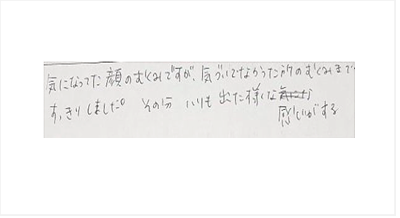 気になってた顔のむくみですが、気づいてなかった所のむくみまで
すっきりしました。その分 いつも出た様な
感じがする